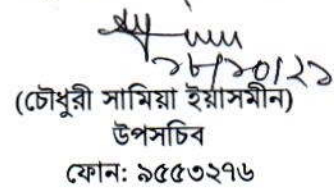 ২৮/১০/২১
(চৌধুরী সামিয়া ইয়াসমীন)
উপসচিব
ফোন: ৯৫৫৩২৭৬